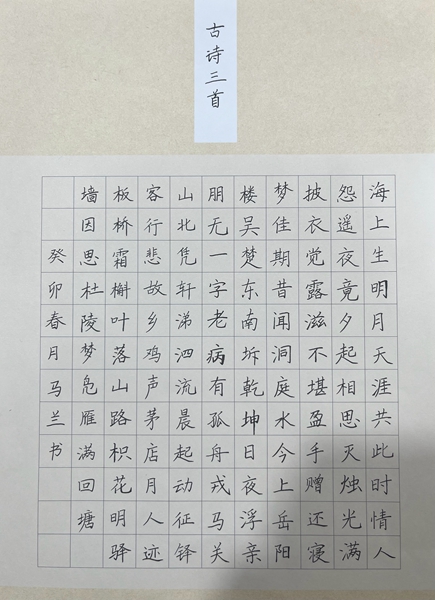 古诗三首
海上生明月天涯共此时情人
怨遥夜竟夕起相思灭烛光满
披衣觉露滋不堪盈手赠还寝
梦佳期昔闻洞庭水今上岳阳
楼吴楚东南坼乾坤日夜浮亲
朋无一字老病有孤舟戎马关
山北凭轩涕泗流晨起动征铎
客行悲故乡鸡声茅店月人迹
板桥霜槲叶落山路枳花明驿
墙因思杜陵梦凫雁满回塘
癸卯春月马兰书